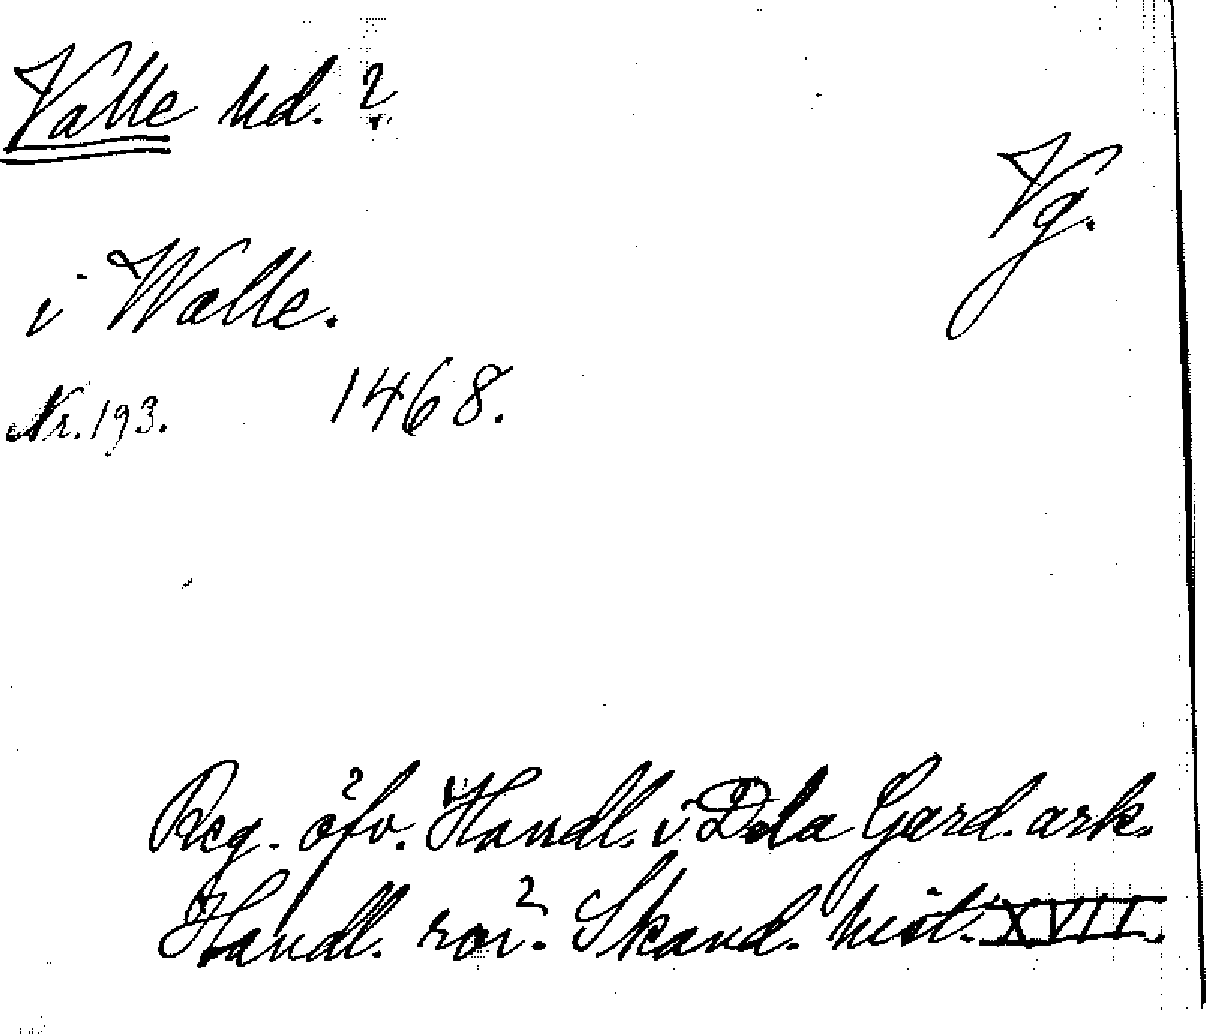 Valle hd. ?
Vg.
i Walle.
Nr. 193. 1468.
Reg. öfv. Handl. i Dela Gard. ark.
Handl. rör. Skand. hist. XVII.